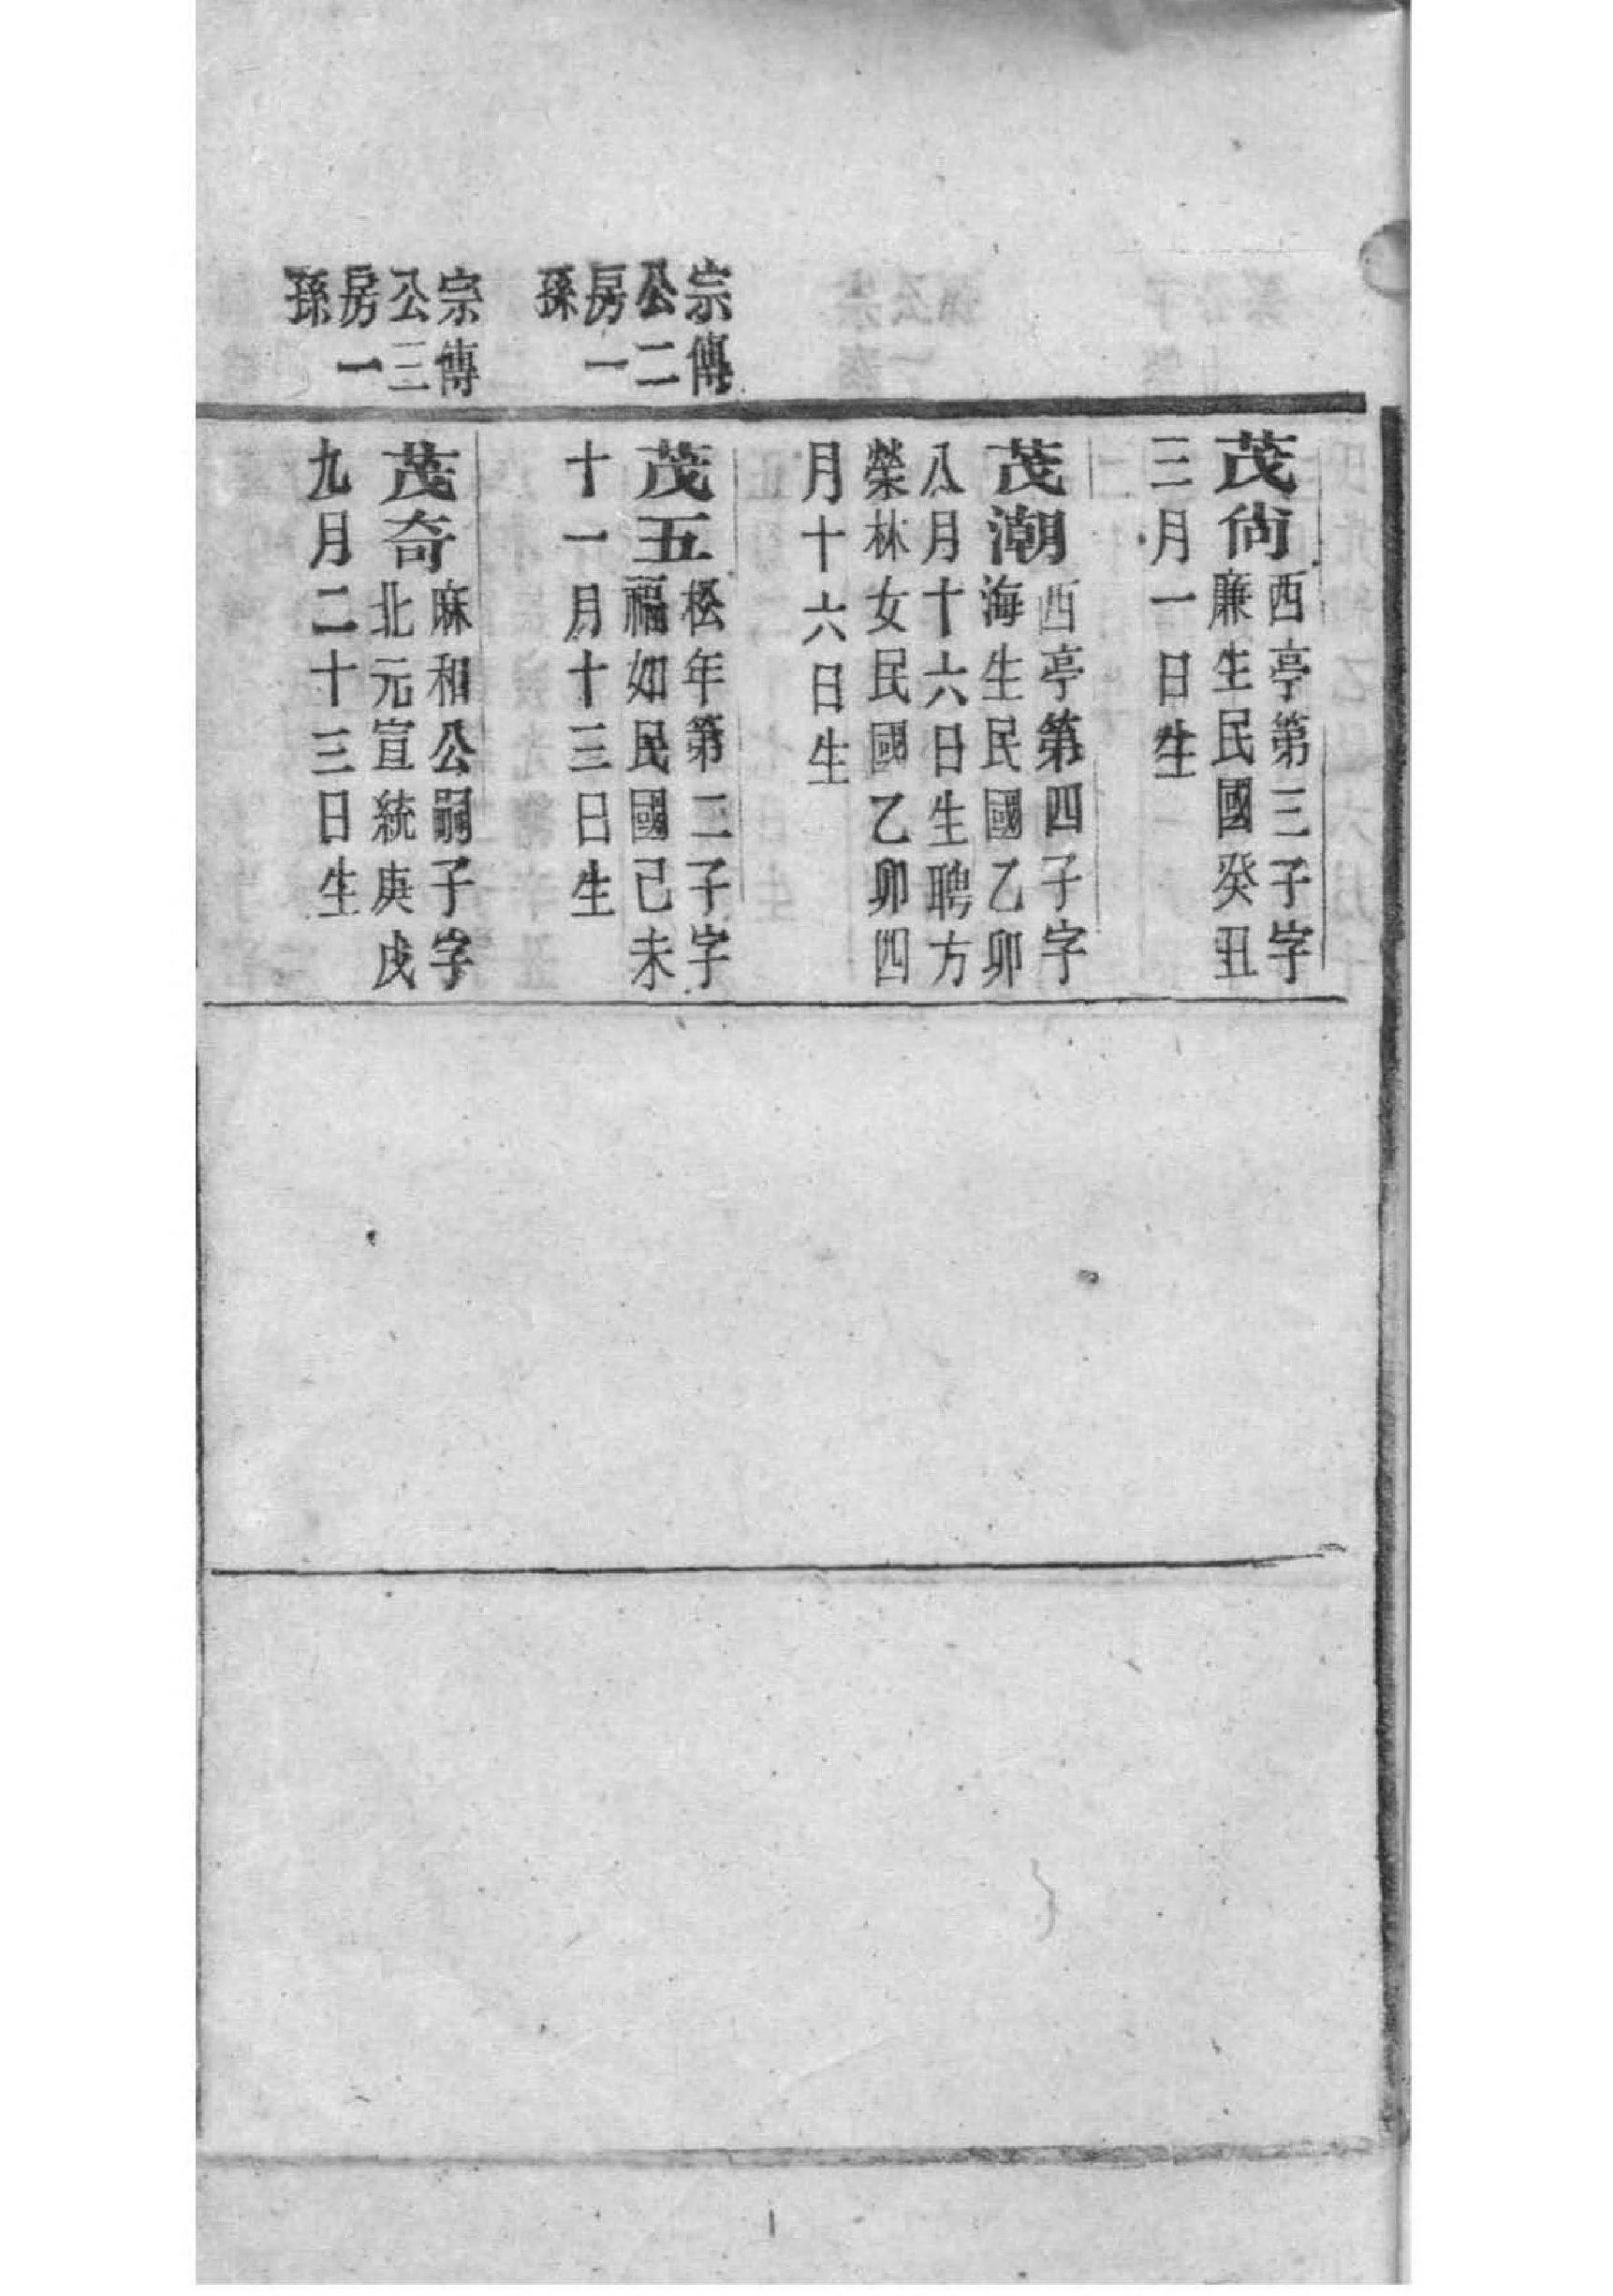 茂尙
西亭第三子字
廉生民國癸丑
三月一日生
茂潮
西亭第四子字
海生民國乙卯
八月十六日生聘方
榮林女民國乙卯四
月十六日生
宗傳
公二
房一
孫
茂五
松年第二子字
福如民國己未
十一月十三日生
宗傳
公三
房一
孫
茂奇
麻和公嗣子字
北元宣統庚戌
九月二十三日生